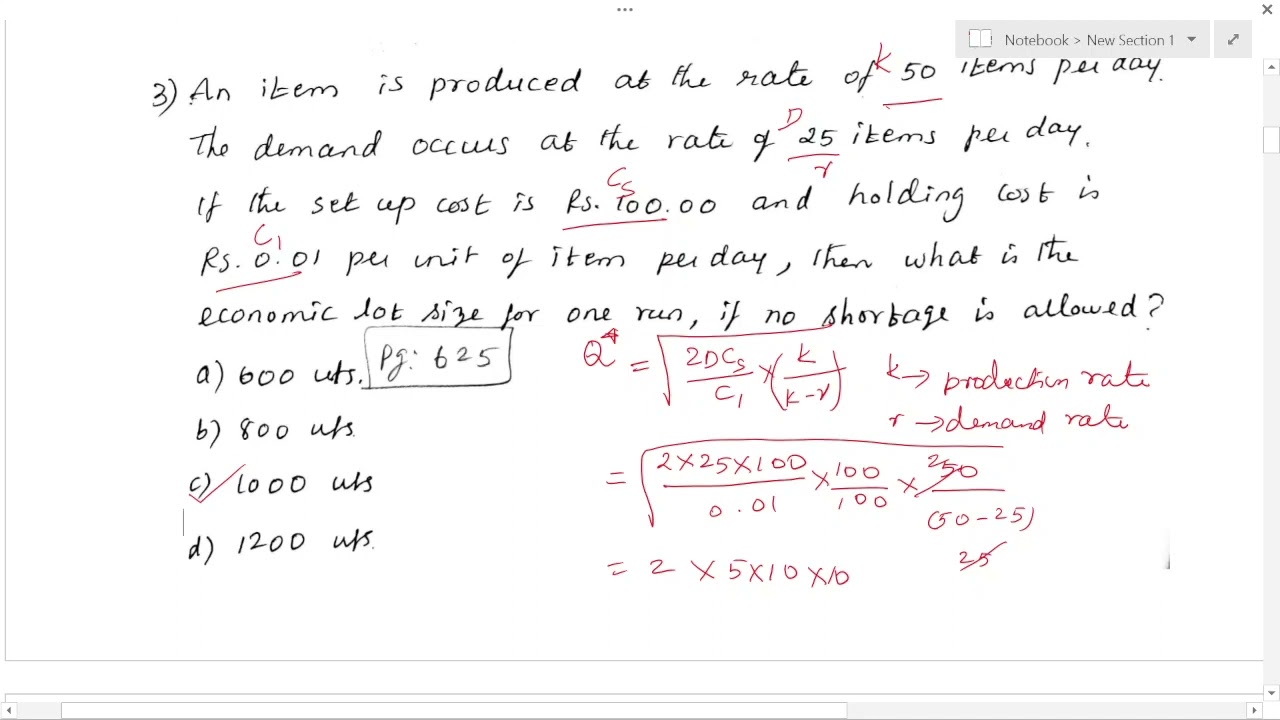 Notebook > New Section 1
3) An item is produced at the rate of k 50 items per day.
The demand occurs at the rate of D 25 r items per day.
If the set up cost is Cs Rs. 100.00 and holding cost is
C1 Rs. 0.01 per unit of item per day, then what is the
economic lot size for one run, if no shortage is allowed?
a) 600 uts. Pg: 625
b) 800 uts.
c) ✓ 1000 uts
d) 1200 uts.
Q* = √ 2DCs / C1 × (k / k-r)
k → production rate
r → demand rate
= √ 2×25×100 / 0.01 × 100 / 100 × 50 / (50-25)
2
25
= 2 × 5×10 ×10